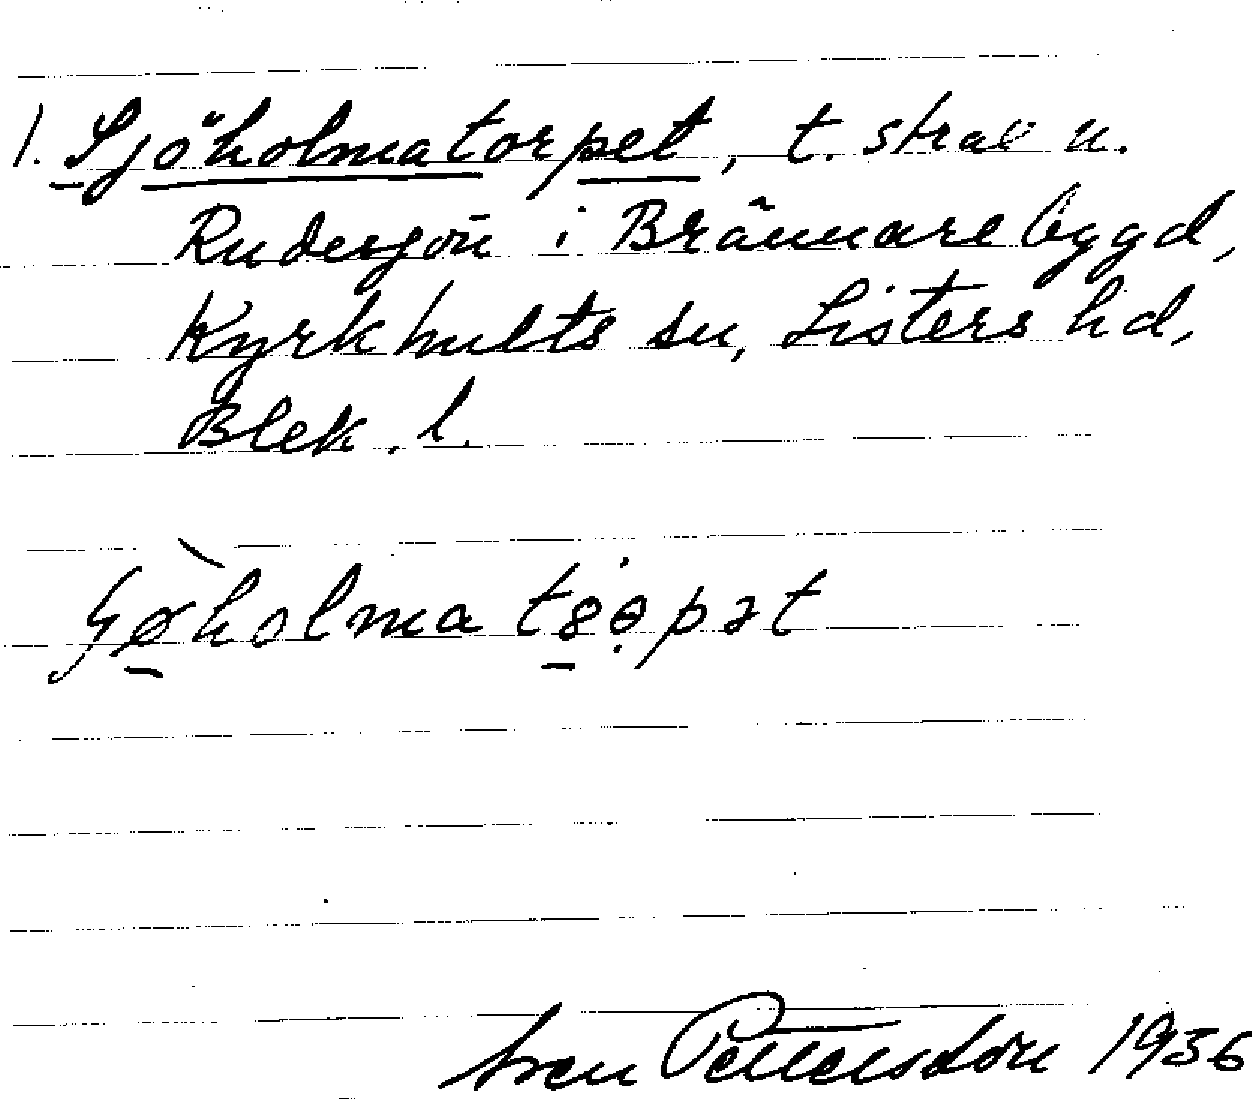 1. Sjöholmatorpet, t. strax n.
Rudesjön i Brännarebygd,
Kyrkhults sn, Listers hd,
Blek. l.
Sven Pettersson 1936